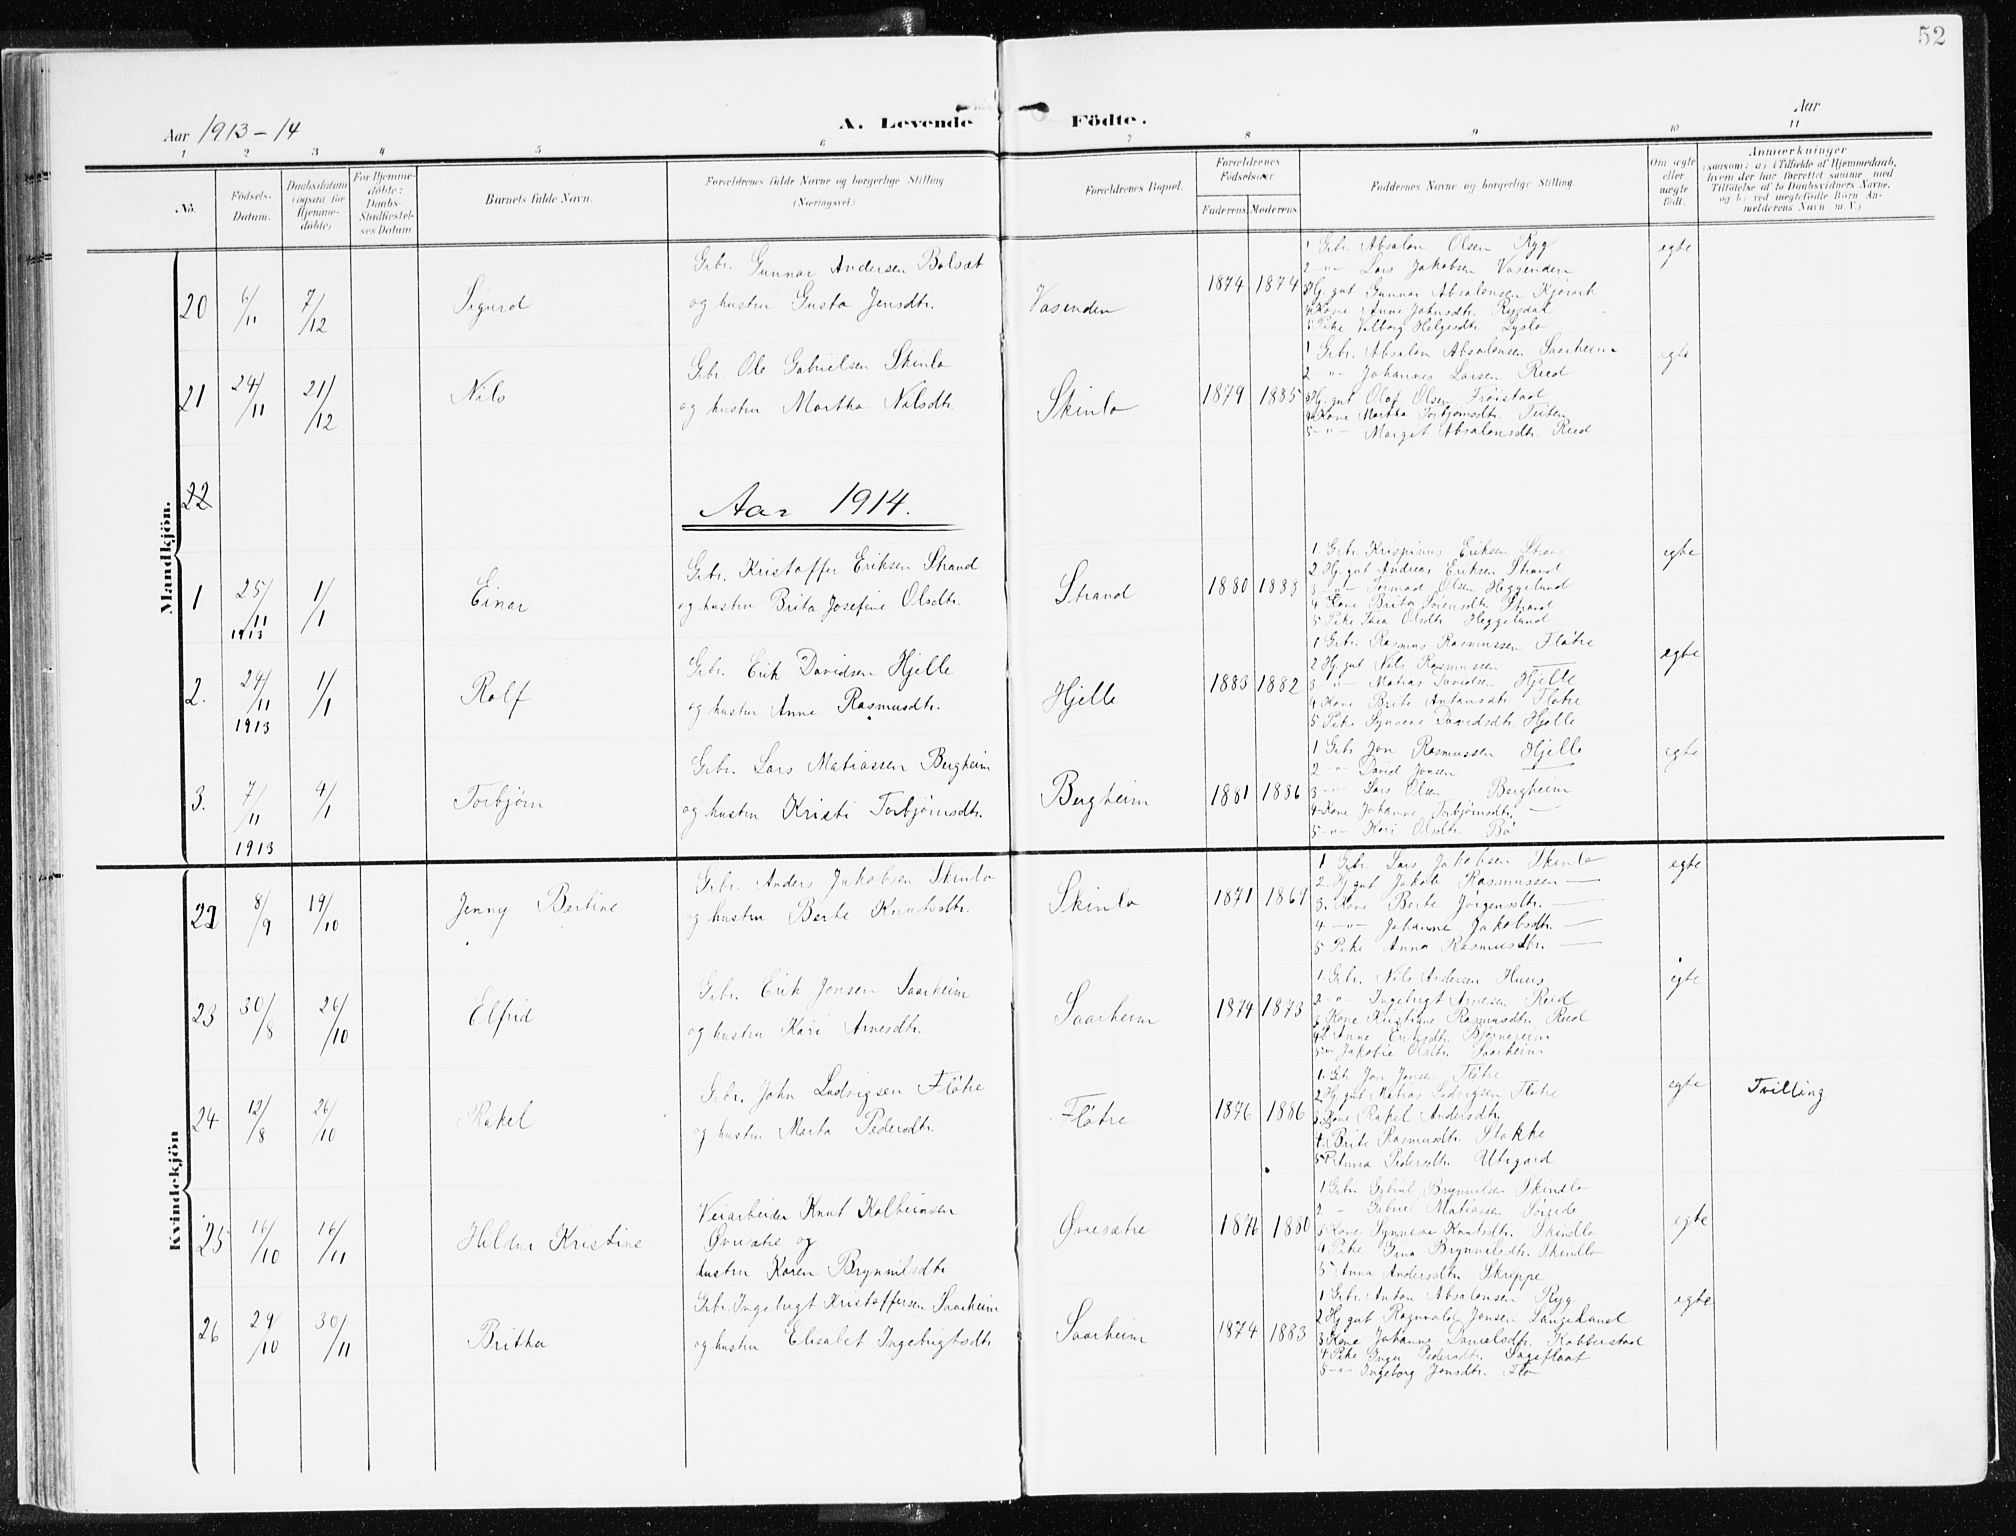 52
Aar 1913-14
A. Levende Födte.
Aar
1 2 3 4 5 6 7 8 9 10 11
No.
Födsels-Datum.
Daabsdatum (ogsaa for Hjemmedöbte)
For Hjemmedöbte: Daabs-Stadfæstelses Datum
Barnets fulde Navn.
Forældrenes fulde Navne og borgerlige Stilling (Næringsvei.)
Forældrenes Bopæl.
Forældrenes Födselsaar
Faderens. Moderens.
Faddernes Navne og borgerlige Stilling.
Om ægte eller uægte født.
Anmærkninger (saasom: a) i Tilfælde af Hjemmedaab, hvem der har forrettet samme, med Tilföielse af to Daabsvidners Navne, og b) ved uægtefödte Börn Anmelderens Navn m. V.)
Mandkjön.
20 6/11 7/12 Sigurd
Gbr. Gunnar Andersen Bolsæt
og hustru Gusta Jensdtr.
Vasenden 1874 1874
1 Gbr. Absalon Olsen Ryg
2 -"- Lars Jakobsen Vasenden
3 Hj. gut Gunnar Absalonsen
4 Kone Anne Johnsdtr. Rygdal
5 Pike Valborg Helgesdtr. Lyslo
egte
21 24/11 21/12 Nils
Gbr. Ole Gabrielsen Skinlo
og hustru Martha Nilsdtr.
Skinlo 1879 1885
1 Gbr. Absalon Absalonsen Saarheim
2 -"- Johannes Larsen Reed
3 Hj. gut Olaf Olsen
4 Kone Martha Torbjørnsdtr.
5 -"- Margit Absalonsdtr. Reed
egte
22
Aar 1914.
1 25/11 1913 1/1 Einar
Gbr. Kristoffer Eriksen Strand
og hustru Brita Josefine Olsdtr.
Strand 1880 1883
1. Gbr. Krispinus Eriksen Strand
2 Hj. gut Andreas Eriksen Strand
3 -"- Tormod Olsen Heggelund
4 Kone Brita Strand
5 Pike Thea Olsdtr. Heggelund
egte
2. 24/11 1913 1/1 Rolf
Gbr. Erik Davidsen Hjelle
og hustru Anne Rasmusdtr.
Hjelle 1883 1882
1 Gbr. Rasmus Rasmussen Fløtre
2 Hj. gut Nils Rasmussen —
3 -"- Matias Davidsen Hjelle
4 Kone Brite Antonsdtr Fløtre
5 Pike Synneve Davidsdtr. Hjelle
egte
3. 7/11 1913 4/1 Torbjørn
Gbr. Lars Matiassen Bergheim
og hustru Kristi Torbjørnsdtr.
Bergheim 1881 1886
1 Gbr Jon Rasmussen Hjelle
2 -"- David Jonsen —
3 -"- Lars Olsen Bergheim
4 Kone Johanne Torbjørnsdtr. —
5 -"- Kari Olsdtr. Bø
egte
Kvindekjön
22 8/9 19/10 Jenny Bertine
Gbr. Anders Jakobsen Skinlo
og hustru Berte Knutsdtr.
Skinlo 1871 1869
1 Gbr. Lars Jakobsen Skinlo
2. Hj. gut Jakob Rasmussen —
3. Kone Berte Jørgensdtr. —
4 -"- Johanne Jakobsdtr. —
5 Pike Anna Rasmusdtr. —
egte
23 30/8 26/10 Elfrid
Gbr. Erik Jonsen Saarheim
og hustru Kari Arnesdtr.
Saarheim 1874 1873
1. Gbr. Nils Andersen Huus
2 -"- Ingebrigt Arnesen Reed
3 Kone Kristiane Rasmusdtr. Reed
4 P. Anne Eriksdtr. Bjørnereim
5 -"- Jakobie Olsdtr. Saarheim
egte
24 12/8 26/10 Rakel
Gbr. John Ludvigsen Fløtre
og hustru Marta Pedersdtr.
Fløtre 1876 1886
1. Gb. Jon Jonsen Fløtre
2 Hj. gut Matias Ludvigsen Fløtre
3. Kone Rakel Andersdtr.
4. Brite Rasmusdtr. Stokke
5 P. Anna Pedersdtr. Utigard
egte Tvilling
25 16/10 16/11 Hilda Kristine
Veiarbeider Knut Kolbeinsen
Øvresætre og
hustru Karen Brynnilsdtr
Øvresætre 1876 1880
1 Gbr Gabriel Brynnilsen Skindlo
2 - Gabriel Matiassen
3 Kone Synneve Knutsdtr. Skindlo
4 Pike Gina Brynnilsdtr. Skindlo
5 Anna Andersdtr. Skreppe
egte
26 29/10 30/11 Britha
Gbr. Ingebrigt Kristoffersen Saarheim
og hustru Elisabet Ingebrigtsdtr
Saarheim 1874 1883
1 Gbr. Anton Absalonsen Ryg
2 Hj gut Ragnvald Jonsen Langeland
3 Kone Johanne Danielsdtr. Kobberstad
4 Pike Inger Pedersdtr.
5 -"- Ingeborg Jonsdtr. Flo
egte